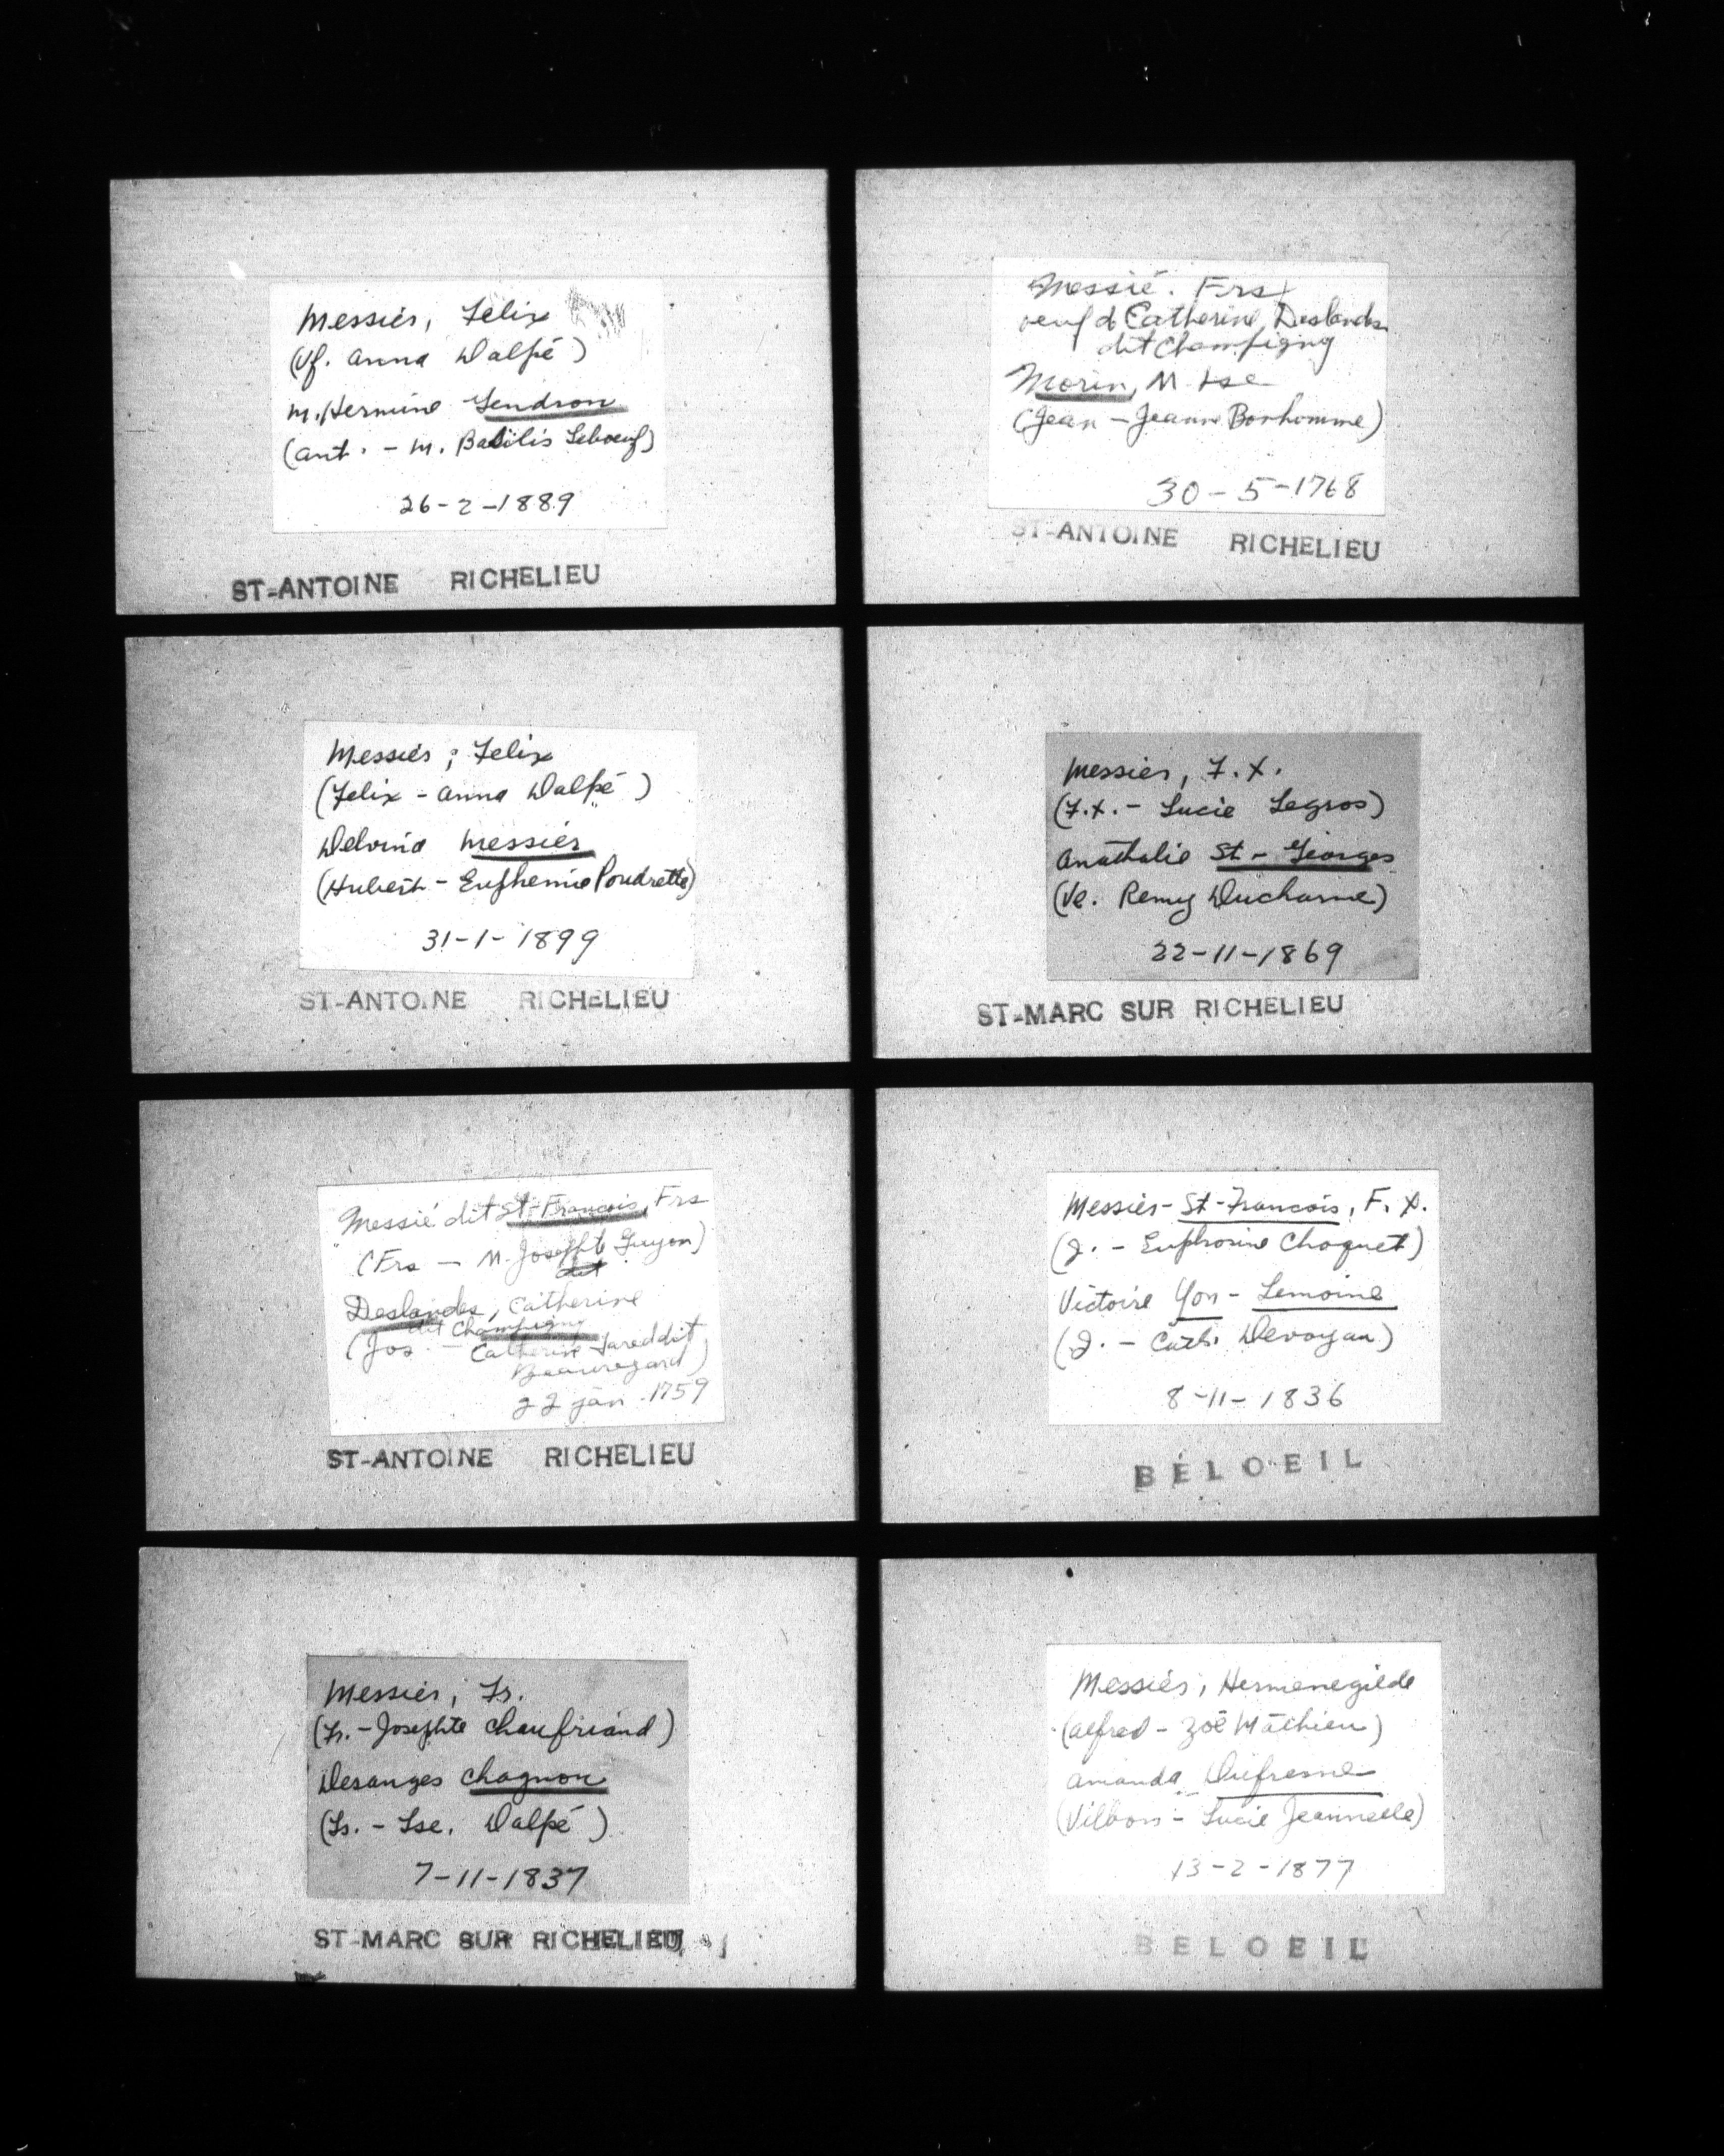 Messier, Felix
(Vf. Anna Dalpé)
M. Hermine Gendron
(Ant. - M. Basilis Leboeuf)
26-2-1889
ST-ANTOINE RICHELIEU
Messié. Frs
veuf d Catherine Deslandes
dit Champigny
Morin, M. Lse
(Jean - Jeanne Bonhomme)
30-5-1768
ST-ANTOINE RICHELIEU
Messier; Felix
(Felix - Anna Dalpé)
Delvina Messier
(Hubert - Euphemie Poudrette)
31-1-1899
ST-ANTOINE RICHELIEU
Messier, F.X.
(F.X. - Lucie Legros)
Anathalie St-Georges
(Ve. Remy Ducharme)
22-11-1869
ST-MARC SUR RICHELIEU
Messié dit St-Francois, Frs
(Frs - M. Josephte Guyon)
dit
Deslandes, Catherine
dit Champigny
(Jos. - Catherine Jared dit
Beauregard)
22 jan. 1759
ST-ANTOINE RICHELIEU
Messier-St-Francois, F. X.
(J. - Euphrosine Choquet)
Victoire Yon-Lemoine
(J. - Cath. Devoyau)
8-11-1836
BÉLOEIL
Messier, Fr.
(Fr. - Josephte Chaufriand)
Desanges Chagnon
(Fs. - Lse. Dalpé)
7-11-1837
ST-MARC SUR RICHELIEU
Messier, Hermenegilde
(Alfred - Zoë Mathieu)
Amanda Dufresne
(Vilbon - Lucie Jeannette)
13-2-1877
BELOEIL